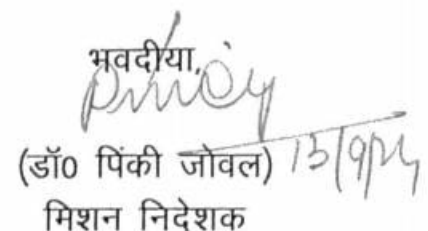 भवदीया,
(डॉ0 पिंकी जोवल) 13/9/24
मिशन निदेशक